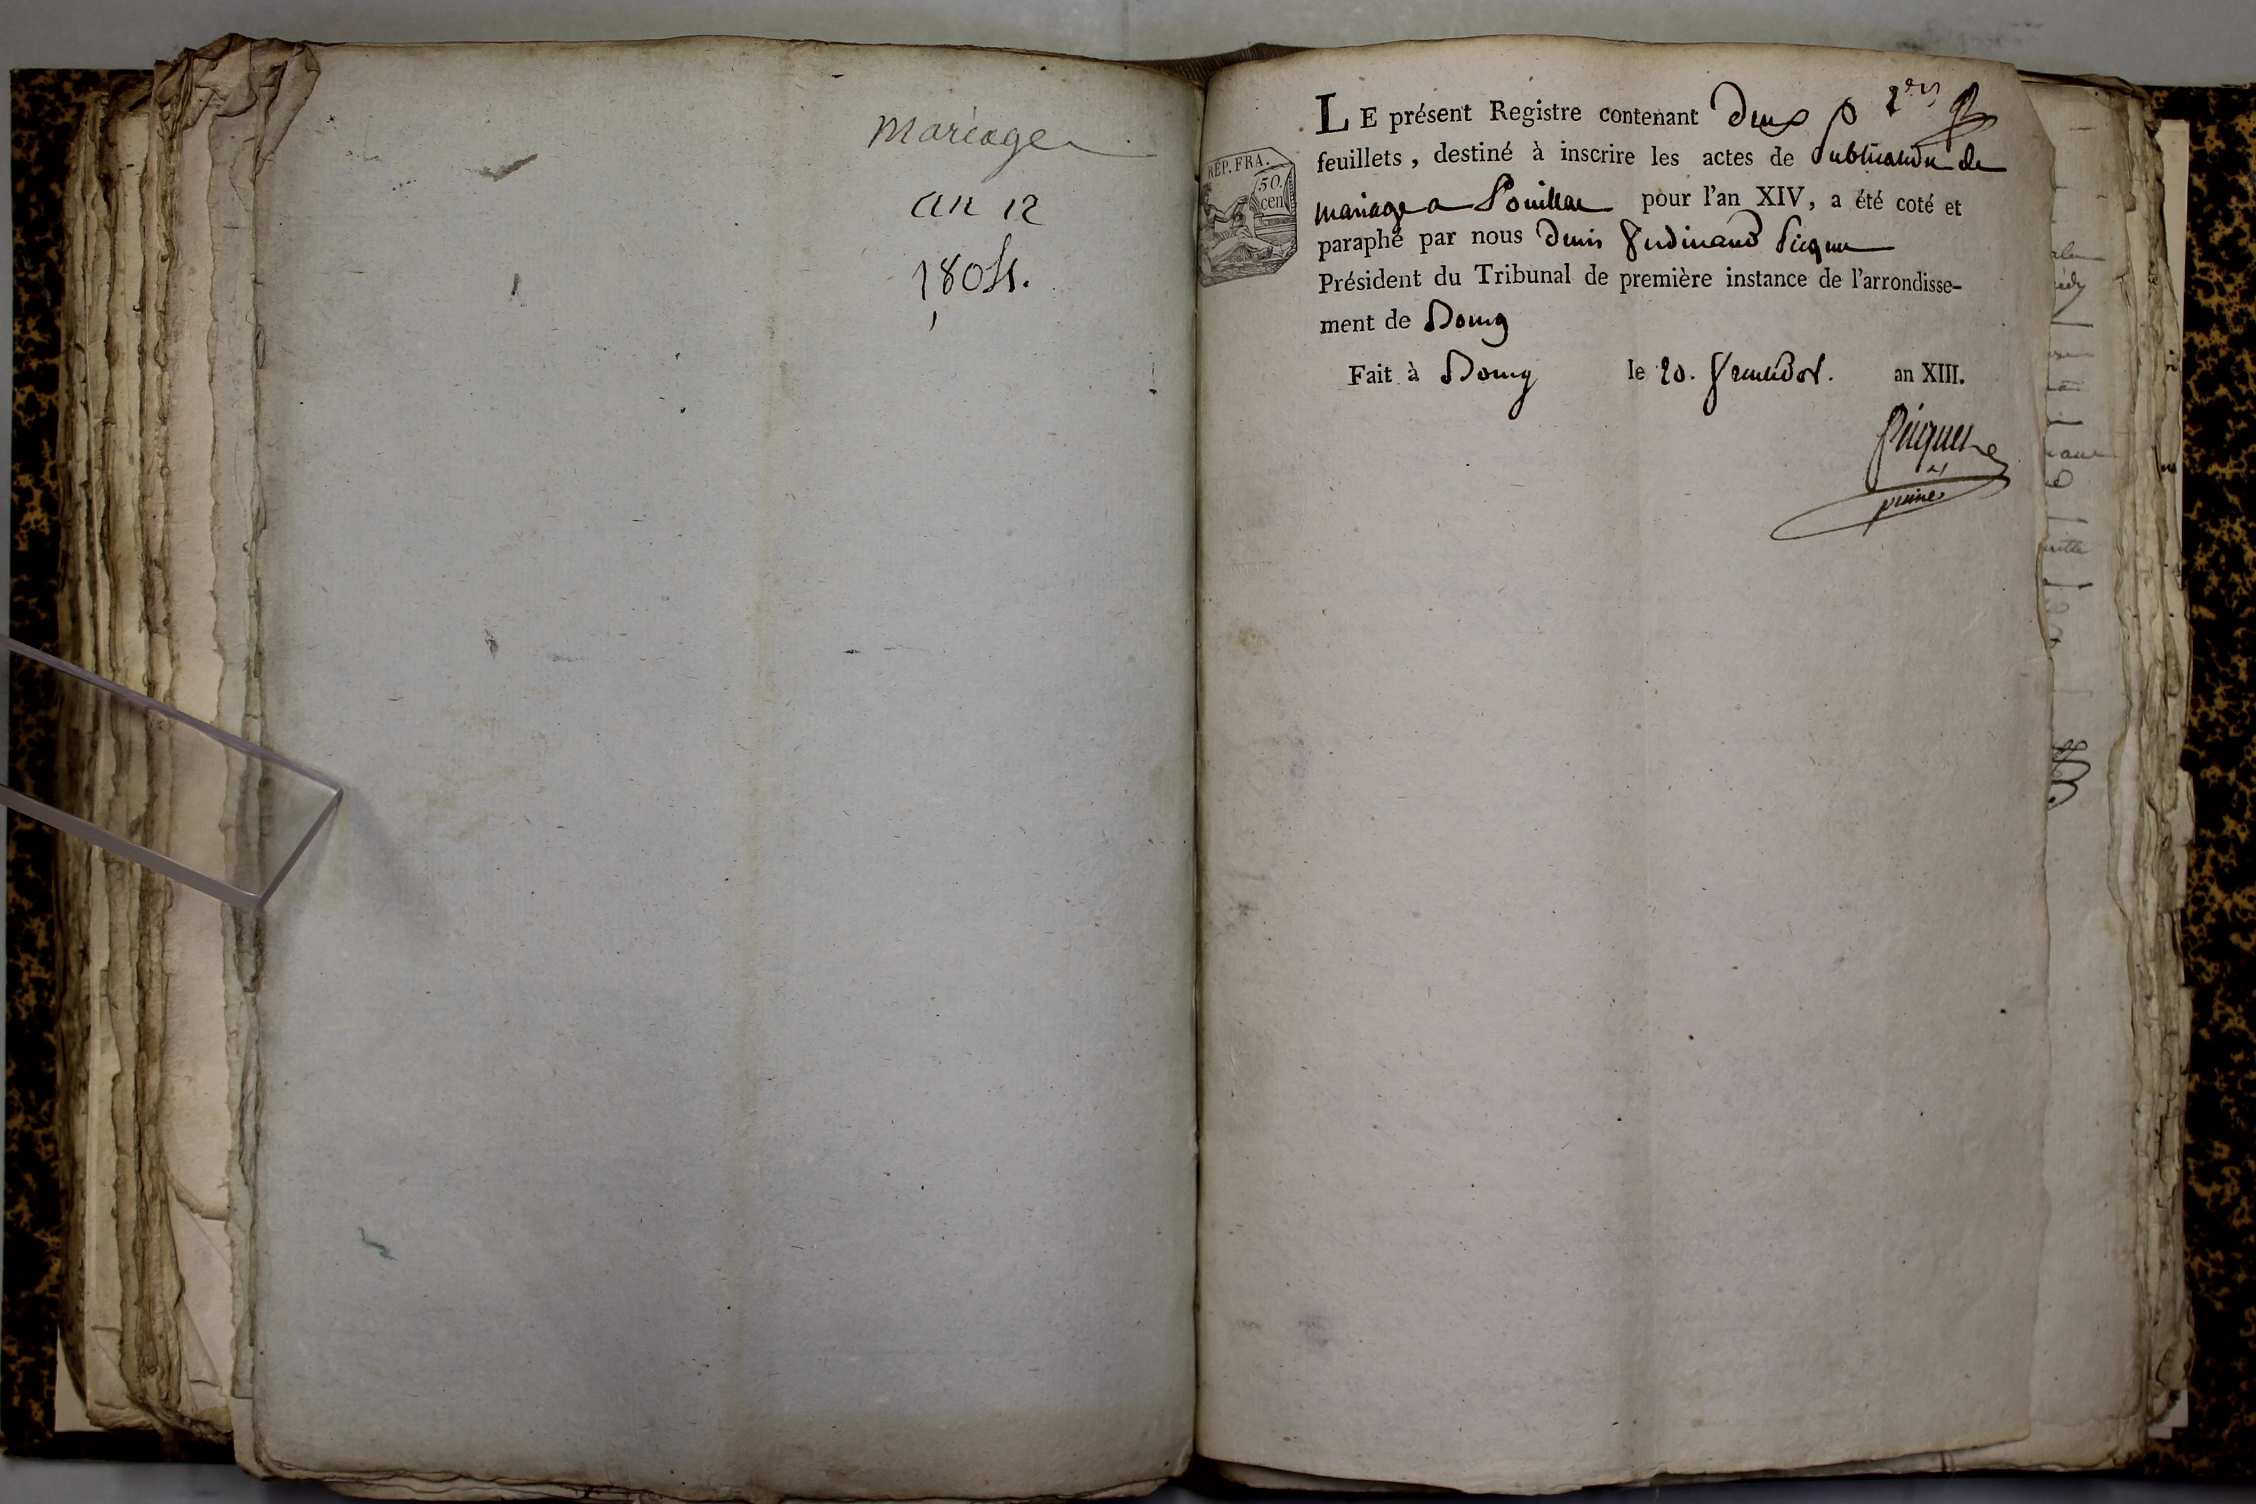 Mariage
an 12
1804.
REP. FRA.
50.
cen
LE présent Registre contenant deux 1er
feuillets, destiné à inscrire les actes de Publication de
mariage a Pouillac pour l'an XIV, a été coté et
paraphé par nous Denis ferdinand Picquet
Président du Tribunal de première instance de l'arrondisse-
ment de Bourg
Fait à Bourg le 20. fructidor. an XIII.
Picquet